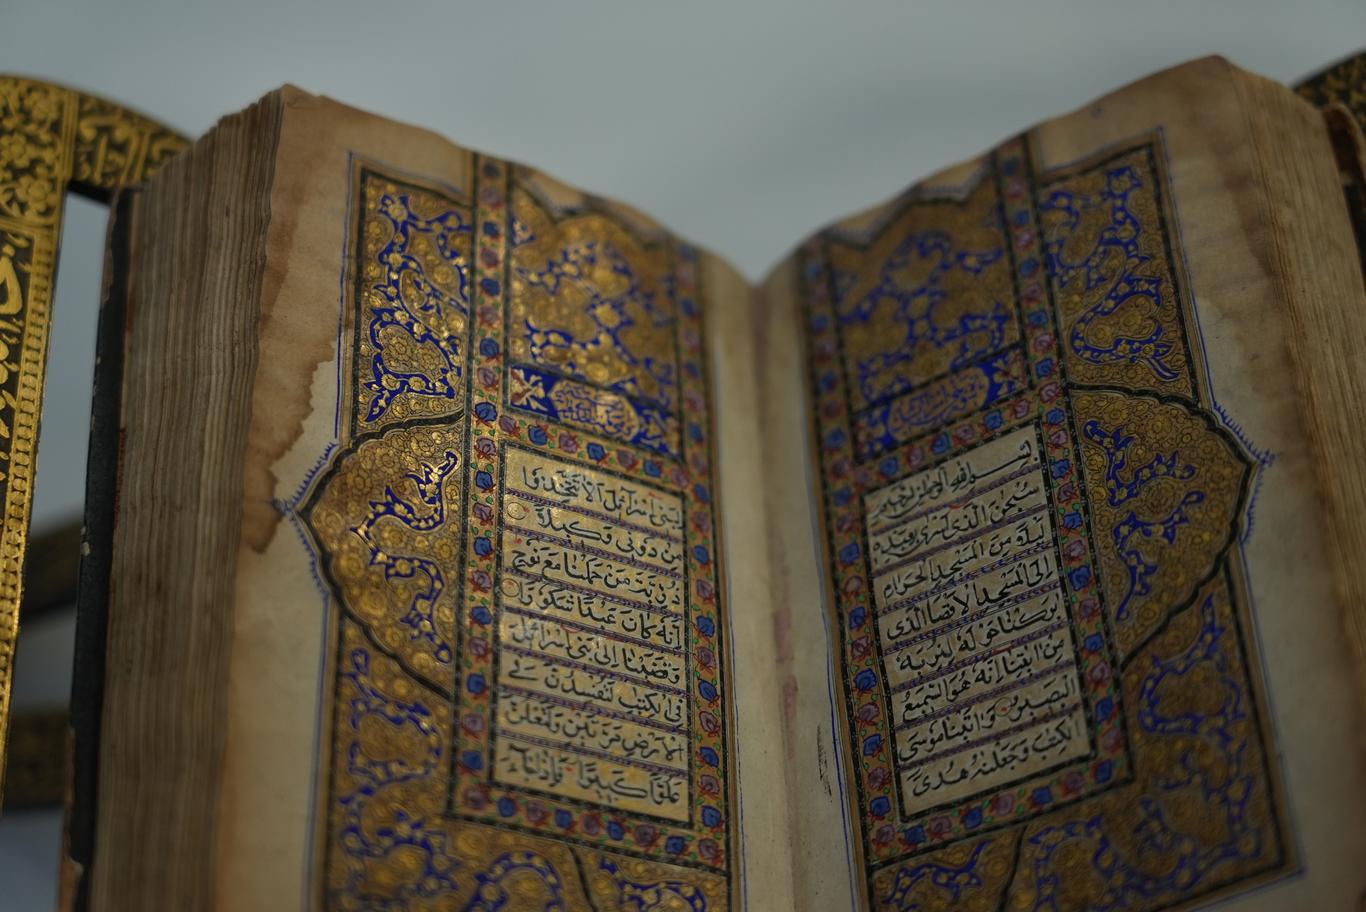 بسم الله الرحمن الرحيم
سبحن الذي اسرى بعبده
ليلا من المسجد الحرام
الى المسجد الاقصا الذي
بركنا حوله لنريه
من ايتنا انه هو السميع
البصير واتينا موسى
الكتب وجعلنه هدى
لبنى اسرائل الا تتخذوا
من دونى وكيلا
ذرية من حملنا مع نوح
انه كان عبدا شكورا
وقضينا الى بنى اسرائل
فى الكتب لتفسدن فى
الارض مرتين ولتعلن
علوا كبيرا فاذا جاء